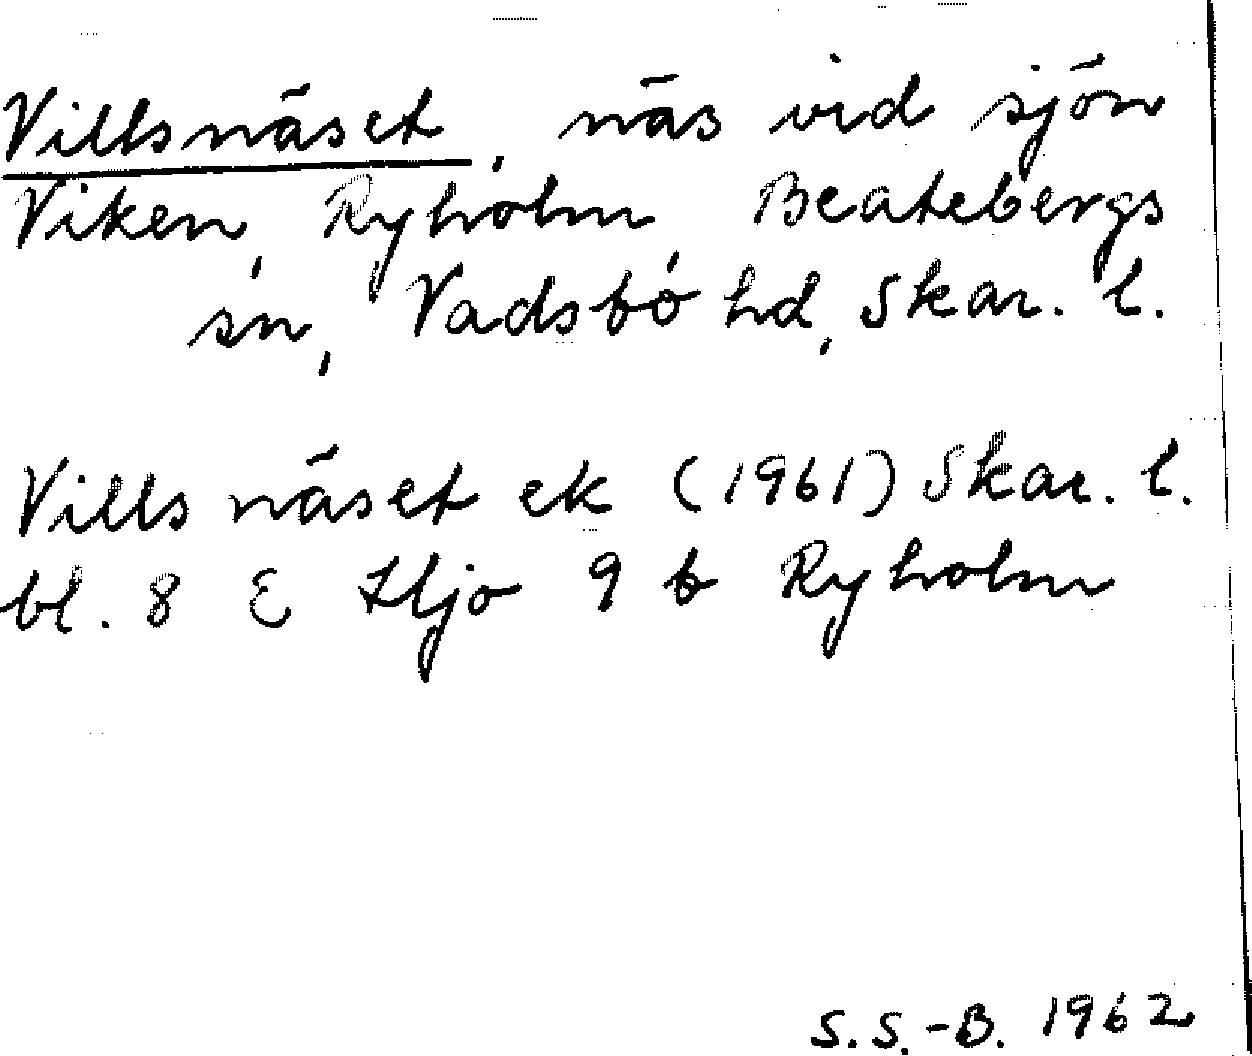 Villsnäset, näs vid sjön
Viken, Ryholm, Beatebergs
sn, Vadsbo hd, Skar. l.
Villsnäset ek (1961) Skar. l.
bl. 8 E Hjo 9 b Ryholm
S.S.-B. 1962